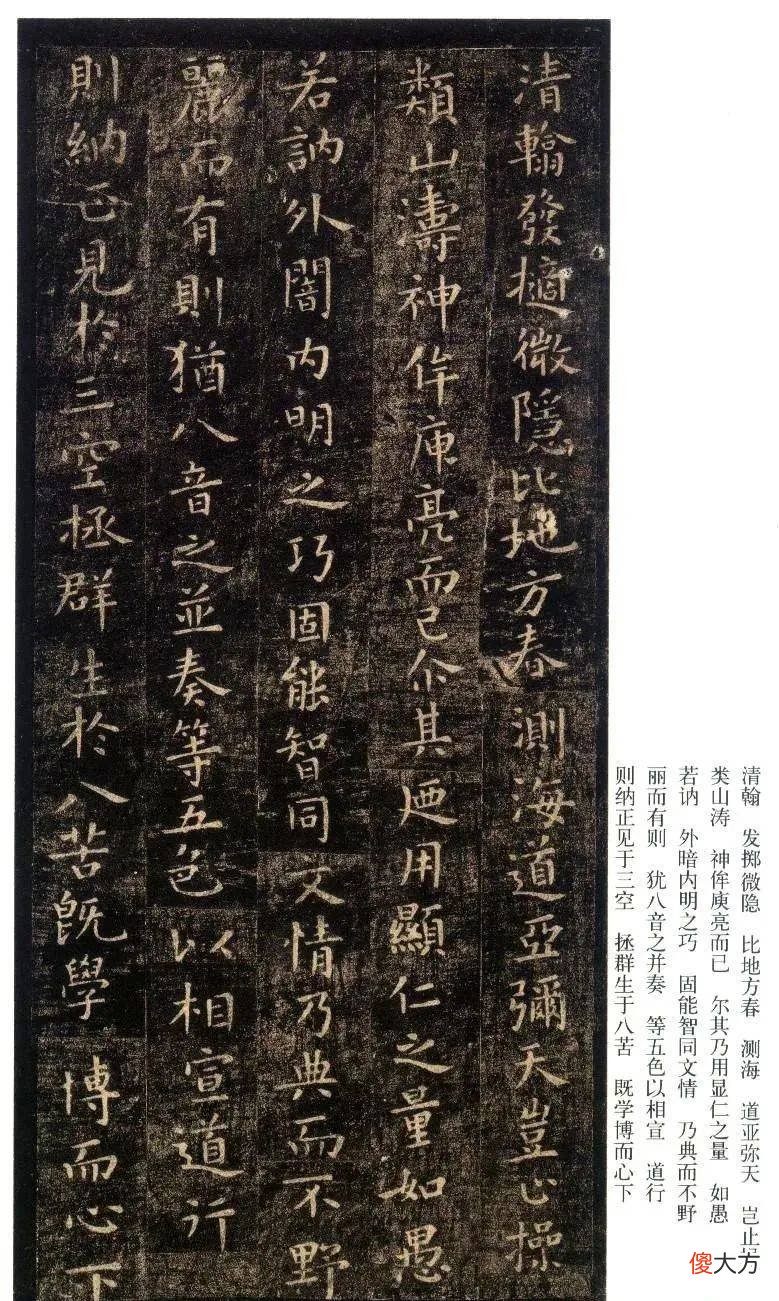 清翰發擿微隱比地方春測海道亞彌天豈止操
類山濤神侔庾亮而已尒其廼用顯仁之量如愚
若訥外闇内明之巧固能智同文情乃典而不野
麗而有則猶八音之並奏等五色以相宣道行
則納正見於三空拯群生於八苦既學博而心下
清翰 发掷微隐 比地方春 测海 道亚弥天 岂止
类山涛 神侔庾亮而已 尔其乃用显仁之量 如愚
若讷 外暗内明之巧 固能智同文情 乃典而不野
丽而有则 犹八音之并奏 等五色以相宣 道行
则纳正见于三空 拯群生于八苦 既学博而心下
傻大方